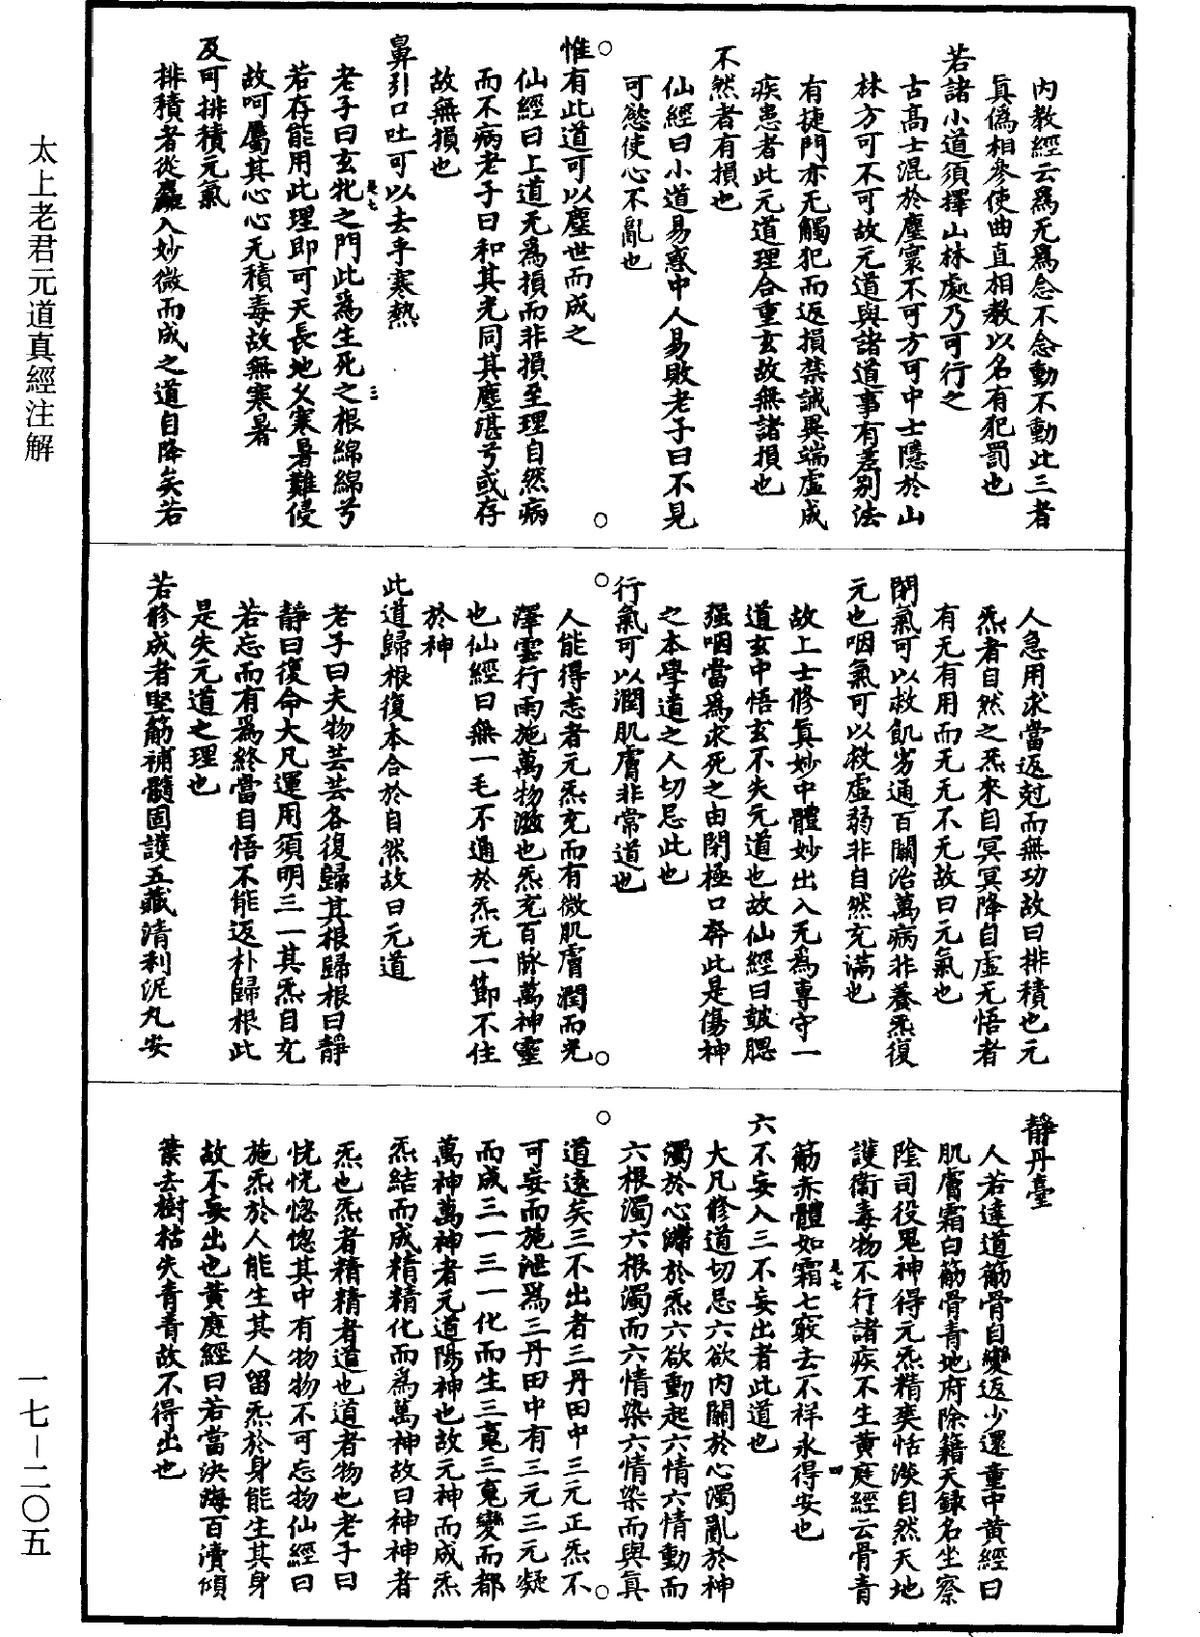 太上老君元道真經注解
內教經云爲无爲念不念動不動此三者
眞僞相參使曲直相教以名有犯罰也
若諸小道須擇山林處乃可行之
古高士混於塵寰不可方可中士隱於山
林方可不可故元道與諸道事有差別法
有捷門亦无觸犯而返損禁誡異端虛成
疾患者此元道理合重玄故無諸損也
不然者有損也
仙經曰小道易惑中人易敗老子曰不見
可慾使心不亂也
惟有此道可以塵世而成之
仙經曰上道无爲損而非損至理自然病
而不病老子曰和其光同其塵湛兮或存
故無損也
鼻引口吐可以去乎寒熱
老子曰玄牝之門此爲生死之根綿綿兮
若存能用此理即可天長地久寒暑難侵
故呵屬其心心无積毒故無寒暑
及可排積元氣
排積者從麤入妙微而成之道自降矣若
人急用求當返尅而無功故曰排積也元
炁者自然之炁來自冥冥降自虛无悟者
有无有用而无无不无故曰元氣也
閉氣可以救飢劣通百關治萬病非養炁復
元也咽氣可以救虛弱非自然充滿也
故上士修眞妙中體妙出入无爲專守一
道玄中悟玄不失元道也故仙經曰皷腮
强咽當爲求死之由閉極口奔此是傷神
之本學道之人切忌此也
行氣可以潤肌膚非常道也
人能得志者元炁充而有微肌膚潤而光
澤雲行雨施萬物滋也炁充百脉萬神靈
也仙經曰無一毛不通於炁无一節不住
於神
此道歸根復本合於自然故曰元道
老子曰夫物芸芸各復歸其根歸根曰靜
靜曰復命大凡運用須明三一其炁自充
若忘而有爲終當自悟不能返朴歸根此
是失元道之理也
若修成者堅筋補髓固護五藏清利泥丸安
靜丹臺
人若達道筋骨自變返少還童中黃經曰
肌膚霜白筋骨青地府除籍天錄名坐察
陰司役鬼神得元炁精爽恬淡自然天地
護衞毒物不行諸疾不生黃庭經云骨青
筋赤體如霜七竅去不祥永得安也
六不妄入三不妄出者此道也
大凡修道切忌六欲內關於心濁亂於神
濁於心滯於炁六欲動起六情六情動而
六根濁六根濁而六情染六情染而與眞
道遠矣三不出者三丹田中三元正炁不
可妄而施泄爲三丹田中有三元三元凝
而成三一三一化而生三䰟三䰟變而都
萬神萬神者元道陽神也故元神而成炁
炁結而成精精化而爲萬神故曰神神者
炁也炁者精精者道也道者物也老子曰
恍恍惚惚其中有物物不可忘物仙經曰
施炁於人能生其人留炁於身能生其身
故不妄出也黃庭經曰若當決海百瀆傾
葉去樹枯失青青故不得出也
是七
三
是七
四
一七－二〇五